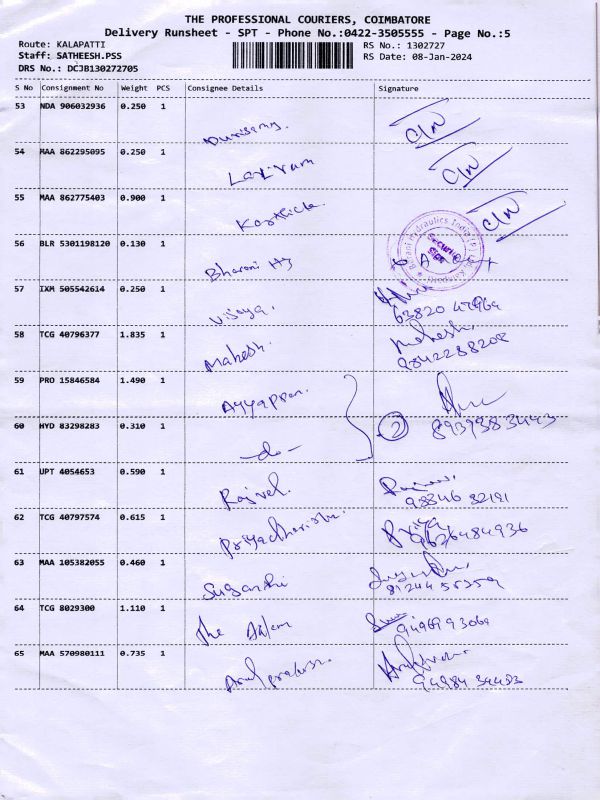 THE PROFESSIONAL COURIERS, COIMBATORE
Delivery Runsheet - SPT - Phone No.:0422-3505555 - Page No.:5
Route: KALAPATTI RS No.: 1302727
Staff: SATHEESH.PSS RS Date: 08-Jan-2024
DRS No.: DCJB130272705
S No Consignment No Weight PCS Consignee Details Signature
53 NDA 906032936 0.250 1
54 MAA 862295095 0.250 1
55 MAA 862775403 0.900 1 Karthick
56 BLR 5301198120 0.130 1 Bharani Hy
57 IXM 505542614 0.250 1 Vijaya.
58 TCG 40796377 1.835 1 Mahesh. Mahesh.
9842288208
59 PRO 15846584 1.490 1 Ayyappan.
60 HYD 83298283 0.310 1 -do- 2 8939383443
61 UPT 4054653 0.590 1 Rajvel.
98346 32191
62 TCG 40797574 0.615 1 Priyadharishn. Priya
9626484936
63 MAA 105382055 0.460 1 Suganthi
64 TCG 8029300 1.110 1 The
65 MAA 570980111 0.735 1 Arul prakash.